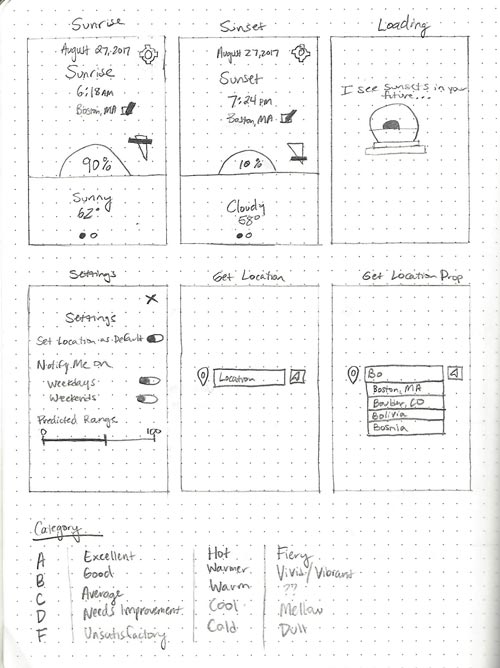 Sunrise
August 27, 2017
Sunrise
6:18 AM
Boston, MA
90%
Sunny
62°
Sunset
August 27, 2017
Sunset
7:24 PM
Boston, MA
10%
Cloudy
58°
Loading
I see sunsets in your
future...
Settings
X
Settings
Set Location as Default
Notify Me on
Weekdays
Weekends
Predicted Range
0 100
Get Location
Location
Get Location Prop
Bo
Boston, MA
Boulder, CO
Bolivia
Bosnia
Category
A Excellent Hot Fiery
B Good Warmer Vivid/Vibrant
C Average Warm ??
D Needs Improvement Cool Mellow
F Unsatisfactory Cold Dull